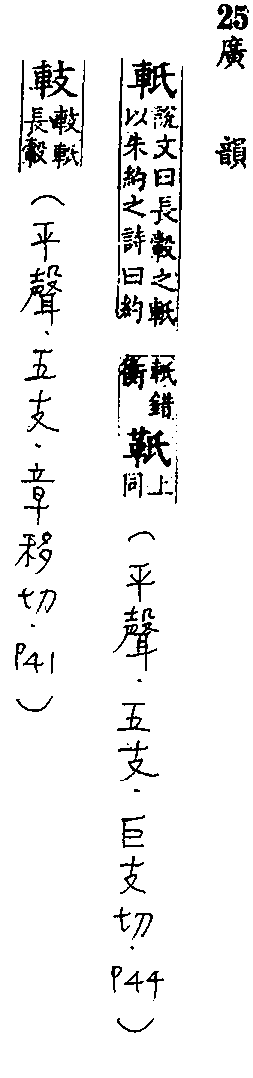 25廣韻
軝說文曰長轂之軝以朱約之詩曰約軝錯衡 上同（平聲．五支．巨支切．P44）
軝長轂（平聲．五支．章移切．P41）